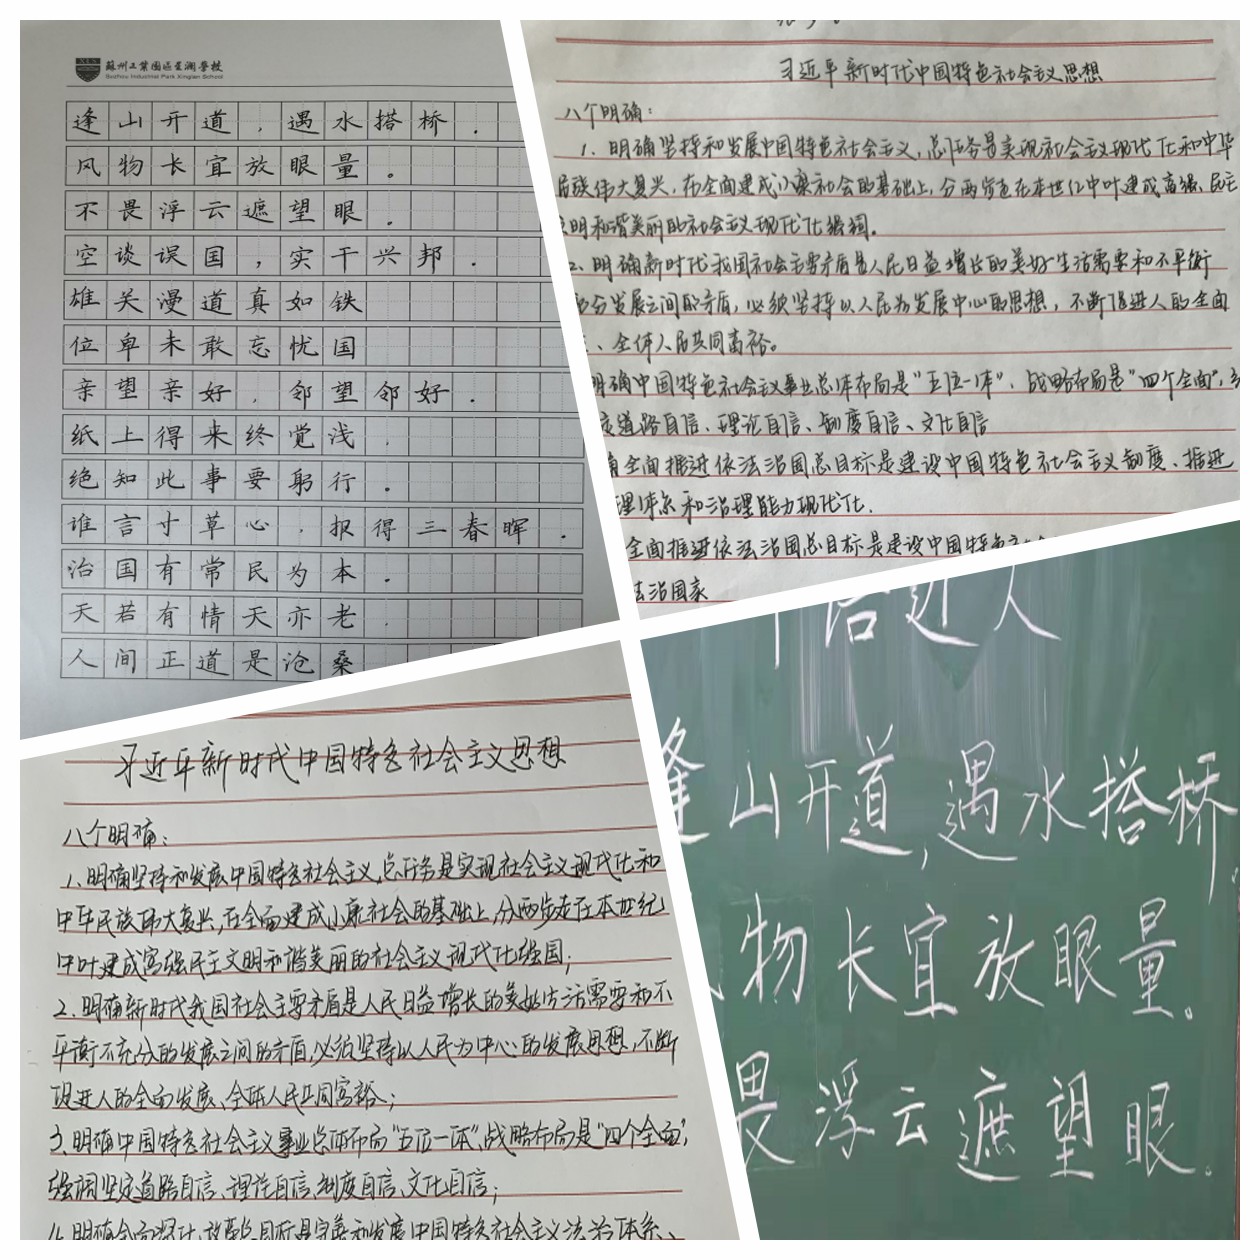 苏州工业园区星澜学校
Suzhou Industrial Park Xinglan School
逢山开道，遇水搭桥．
风物长宜放眼量。
不畏浮云遮望眼．
空谈误国，实干兴邦．
雄关漫道真如铁
位卑未敢忘忧国
亲望亲好，邻望邻好．
纸上得来终觉浅．
绝知此事要躬行．
谁言寸草心，报得三春晖．
治国有常民为本．
天若有情天亦老．
人间正道是沧桑
习近平新时代中国特色社会主义思想
八个明确：
1．明确坚持和发展中国特色社会主义，总任务是实现社会主义现代化和中华
民族伟大复兴，在全面建成小康社会的基础上，分两步走在本世纪中叶建成富强、民主
明和谐美丽的社会主义现代化强国。
2．明确新时代我国社会主要矛盾是人民日益增长的美好生活需要和不平衡
分发展之间的矛盾，必须坚持以人民为发展中心的思想，不断促进人的全面
、全体人民共同富裕。
明确中国特色社会主义事业总体布局是“五位一体”、战略布局是“四个全面”，
定道路自信、理论自信、制度自信、文化自信
全面推进依法治国总目标是建设中国特色社会主义制度、推进
理体系和治理能力现代化．
全面推进依法治国总目标是建设中国特色
法治国家
习近平新时代中国特色社会主义思想
八个明确：
1、明确坚持和发展中国特色社会主义，总任务是实现社会主义现代化和
中华民族伟大复兴，在全面建成小康社会的基础上，分两步走在本世纪
中叶建成富强民主文明和谐美丽的社会主义现代化强国；
2、明确新时代我国社会主要矛盾是人民日益增长的美好生活需要和不
平衡不充分的发展之间的矛盾，必须坚持以人民为中心的发展思想，不断
促进人的全面发展、全体人民共同富裕；
3、明确中国特色社会主义事业总体布局“五位一体”、战略布局是“四个全面”，
强调坚定道路自信、理论自信、制度自信、文化自信；
4、明确全面深化改革总目标是完善和发展中国特色社会主义法治体系、
近人
逢山开道，遇水搭桥。
物长宜放眼量。
畏浮云遮望眼。